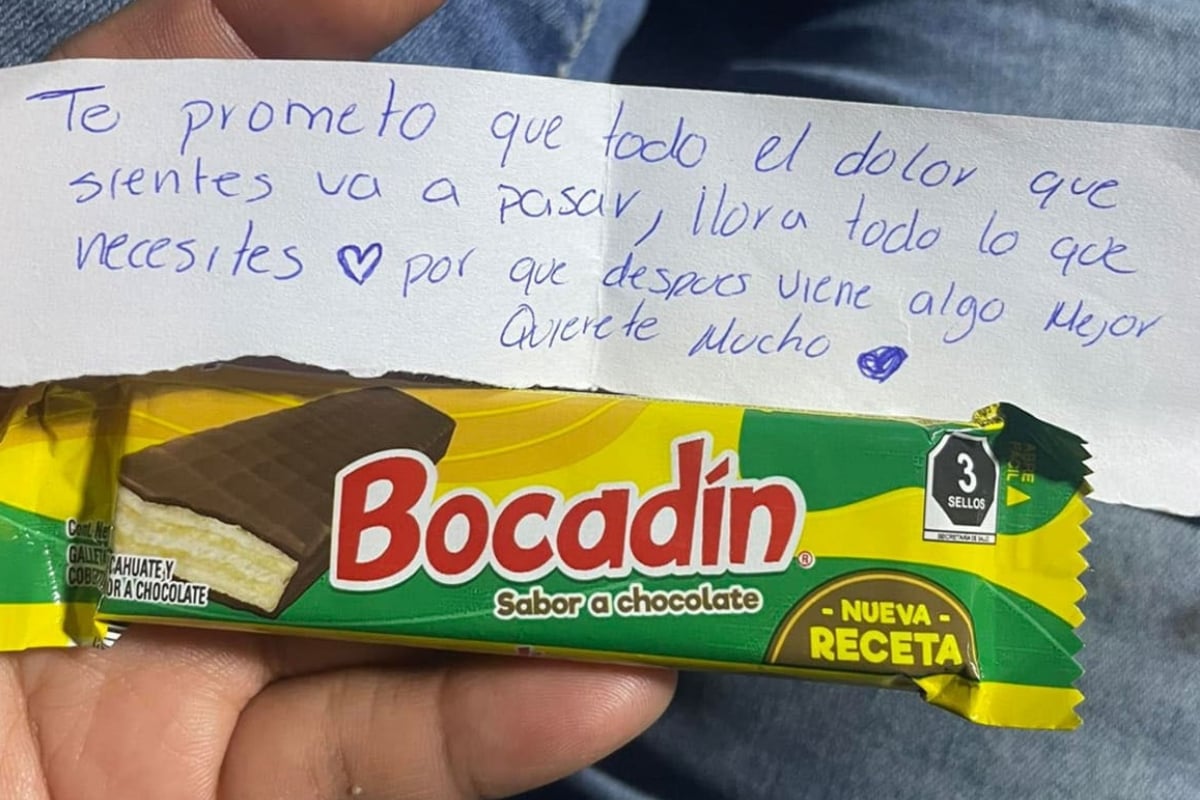 Te prometo que todo el dolor que
sientes va a pasar, llora todo lo que
necesites ♡ por que despues viene algo Mejor
Quierete Mucho
Bocadín®
Sabor a chocolate
- NUEVA -
RECETA
3
SELLOS
SECRETARÍA DE SALUD
ABRE
FÁCIL
Cont. Net
GALLET
CAHUATE Y
OR A CHOCOLATE